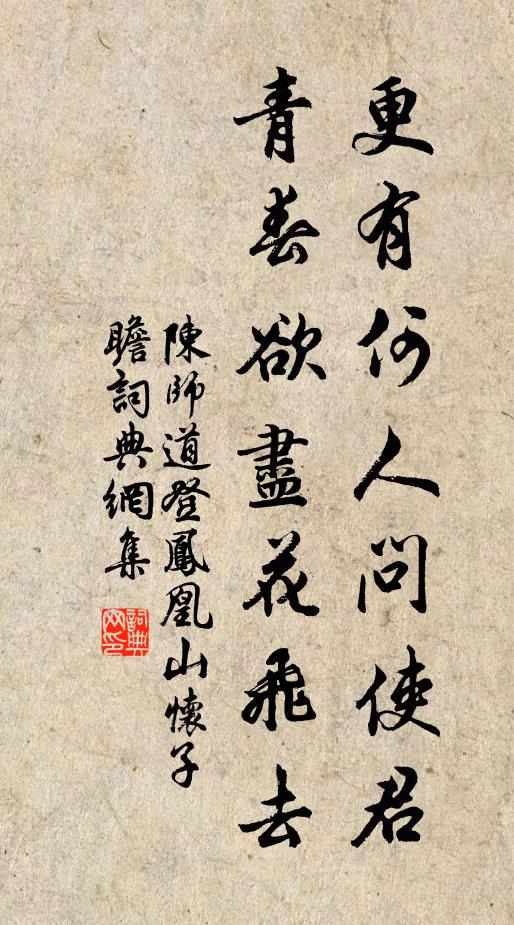 更有何人問使君
青春欲盡花飛去
陳師道登鳳凰山懷子
瞻詞典網集
詞典
网印